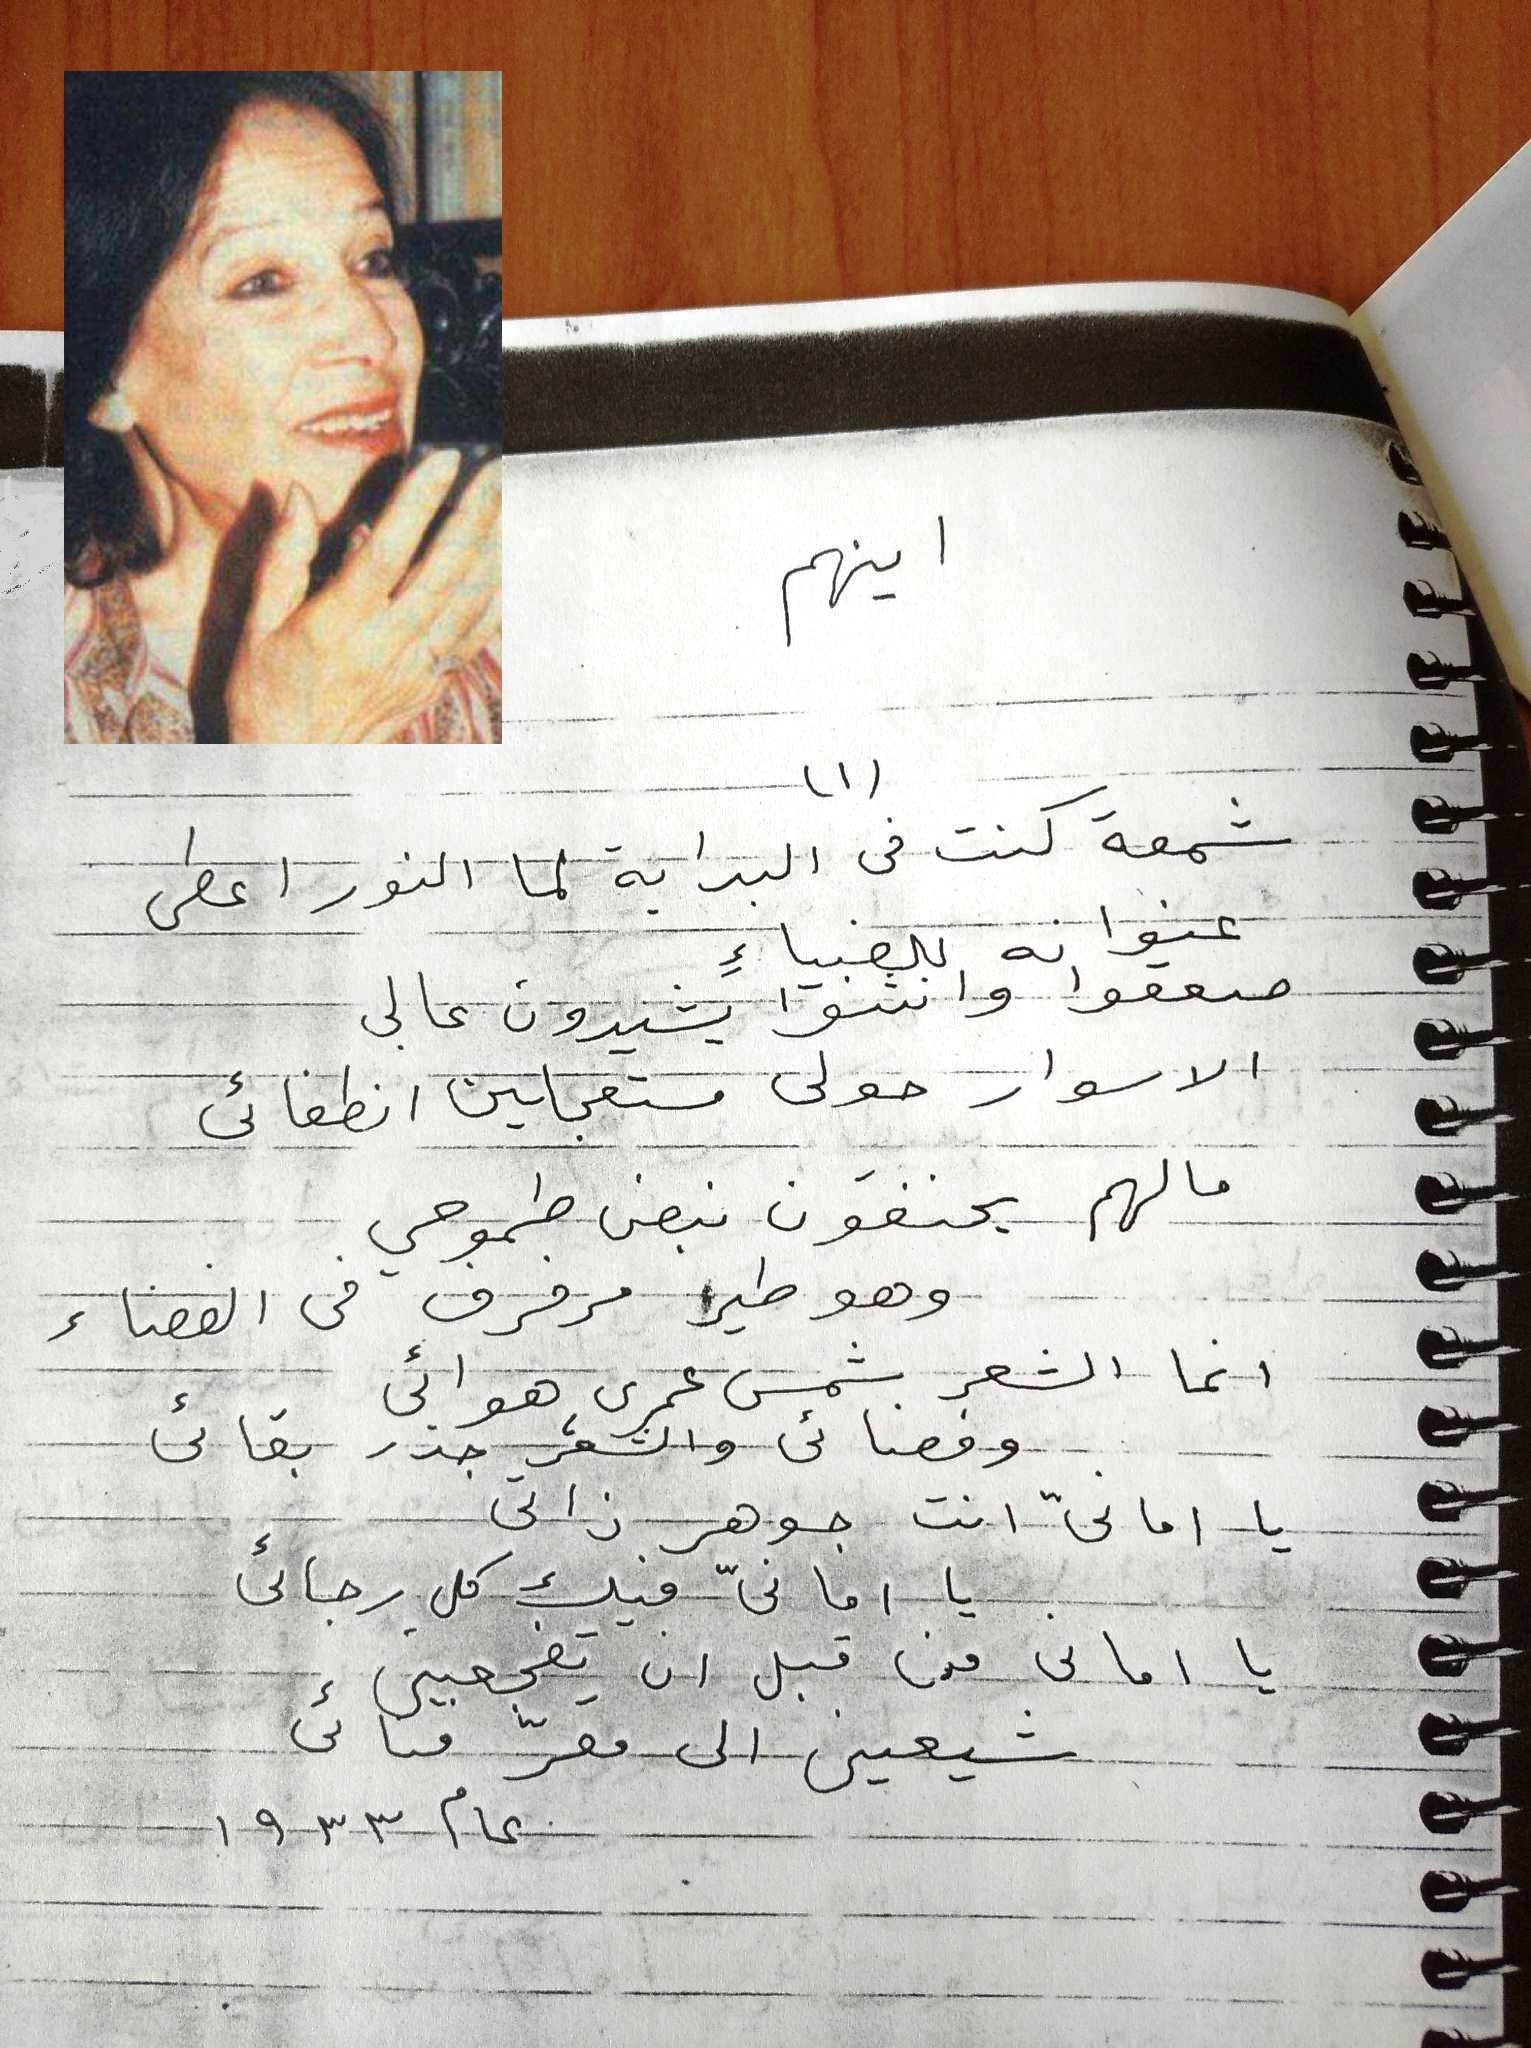 اينهم
(١)
شمعة كنت فى البداية لما النور اعطى
عنوانه للضياءِ
صعقوا وانثنوا يشيدون عالى
الاسوار حولى مستعجلين انطفائى
مالهم يخنقون نبض طموحي
وهو طير مرفرف فى الفضاء
انما الشعر شمس عمرى هوائى
وفضائى والشعر جذر بقائى
يا امانىّ انت جوهر ذاتى
يا امانىّ فيك كل رجائى
يا امانى من قبل ان تفجعينى
شيعينى الى مقرّ فنائى
عام ١٩٣٣